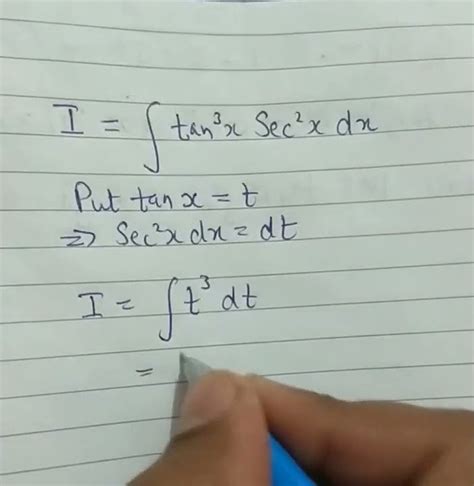 I = ∫ tan³x Sec²x dx
Put tan x = t
=> Sec²x dx = dt
I = ∫ t³ dt
=